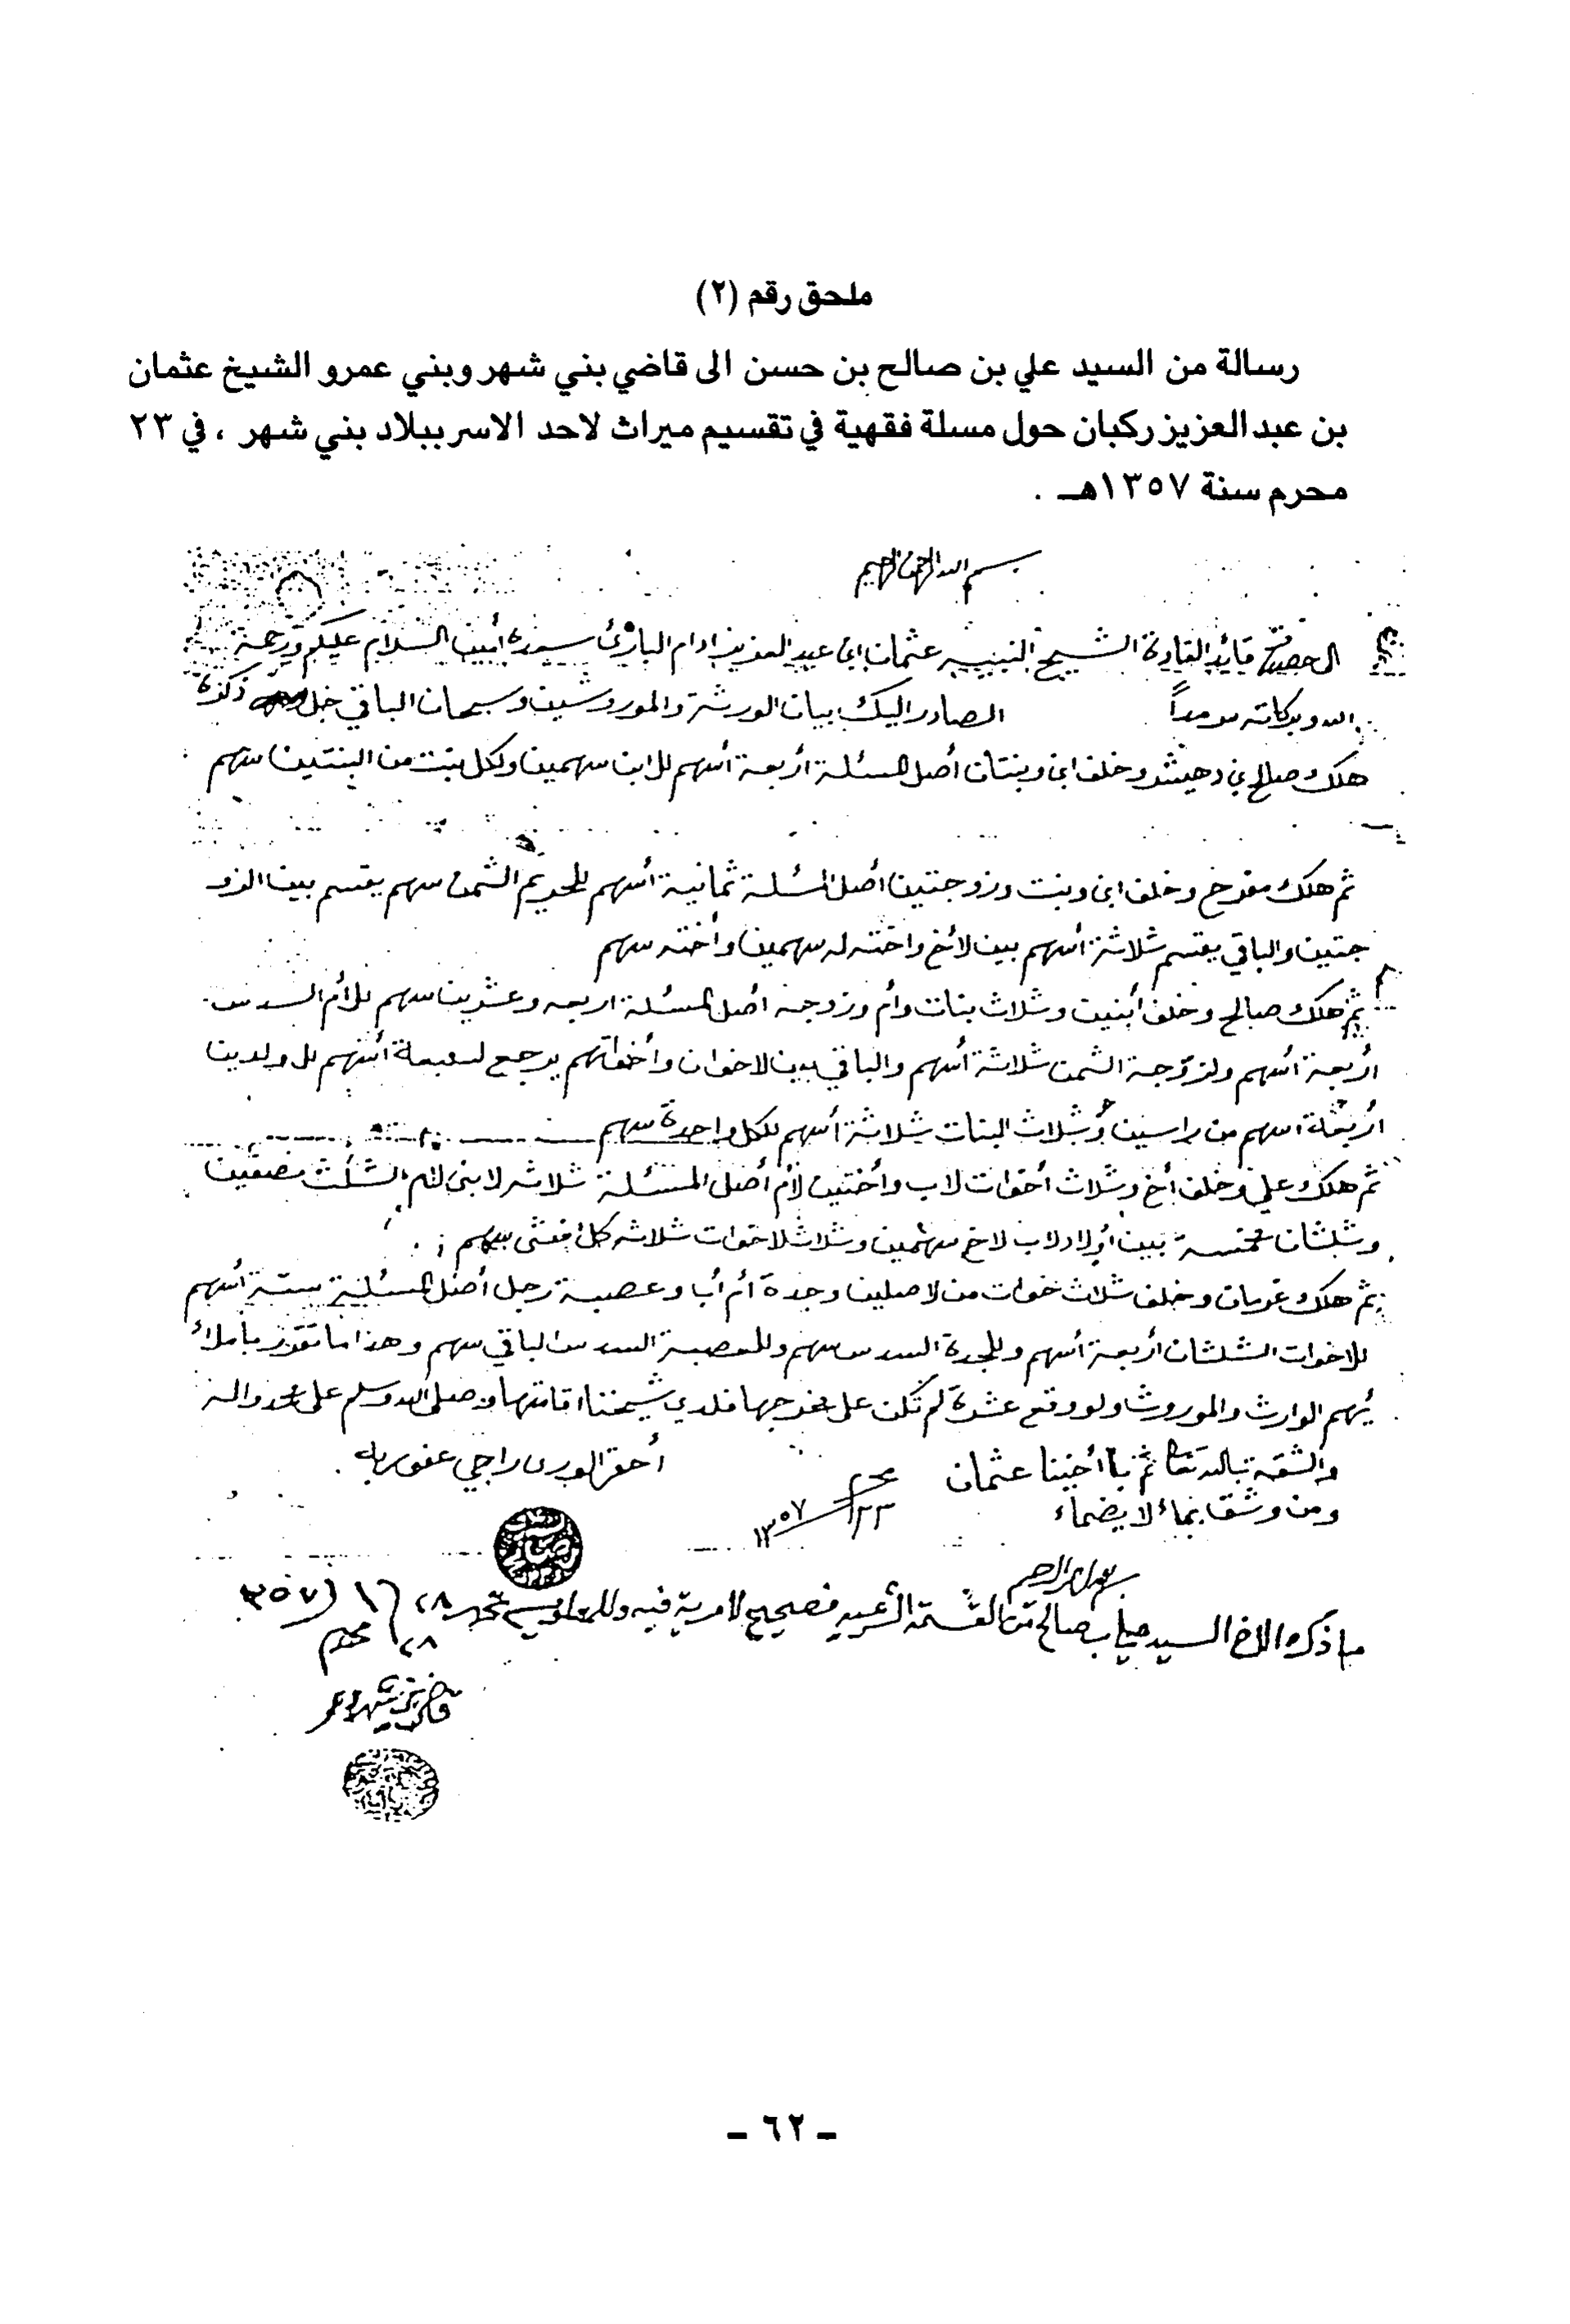 ملحق رقم (٢)
رسالة من السيد علي بن صالح بن حسن الى قاضي بني شهر وبني عمرو الشيخ عثمان
بن عبد العزيز ركبان حول مسلة فقهية في تقسيم ميراث لاحد الاسر ببلاد بني شهر ، في ٢٣
محرم سنة ١٣٥٧هـ .
بسم الله الرحمن الرحيم
الى حضرة قائد القادة الشيخ النبيه عثمان ابن عبد العزيز ادام البارئ سعده أمين السلام عليكم ورحمة
الله وبركاته سرمداً الصادر اليك بيان الورثة والموروثين وسبحان الباقي جل ذكره
هلك صالح بن دهيش وخلف ابن وبنتان أصل المسئلة أربعة أسهم للابن سهمين ولكل بنت من البنتين سهم
ثم هلك مفرح وخلف ابن وبنت وزوجتين أصل المسئلة ثمانية أسهم للحريم الثمن سهم يقسم بين الزو
جتين والباقي يقسم ثلاثة أسهم بين لأخ واخته له سهمين وأخته سهم
ثم هلك صالح وخلف أبنين وثلاث بنات وأم وزوجه أصل المسئلة اربعه وعشرين سهم للأم السدس
أربعة أسهم ولزوجة الثمن ثلاثة أسهم والباقي بين لاخوان وأخواتهم يرجع لسبعة أسهم للولدين
أربعة اسهم من راسين وثلاث البنات ثلاثة أسهم لكل واحدة سهم
ثم هلك علي وخلف أخ وثلاث أخوات لاب وأختين لأم أصل المسئلة ثلاثه لابني لام الثلث نصفين
وثلثان خمسة بين أولاد لاب لاخ سهمين وثلاث لاخوات ثلاثه كل أنثى سهم
ثم هلك وخلف ثلاث خوات من لاصلين وجدة أم أب وعصبة رجل أصل المسئلة ستة أسهم
للاخوات الثلثان أربعة أسهم وللجدة السدس سهم وللعصبة السدس الباقي سهم وهذا ما تقرر بأملائ
يهم الوارث والموروث ولو وقع عشرة لم تكن على مخرجها فلدي شيخنا اقامتها وصلى الله وسلم على محمد واله
والثقة بالله تعا ثم بأأخينا عثمان أحقر الورى راجي عفو ربه
ومن وثق بماء لا يضماء ٢٣ محرم ١٣٥٧
بسم الله الرحمن الرحيم
ما ذكره الاخ السيد علي بن صالح من القسمة الشرعيه فصحيح لا مرية فيه وللمعلومية تحرر ٢٨/١/٣٥٧
٢٨ محرم
قاضي بني شهر وعمر
- ٦٢ -